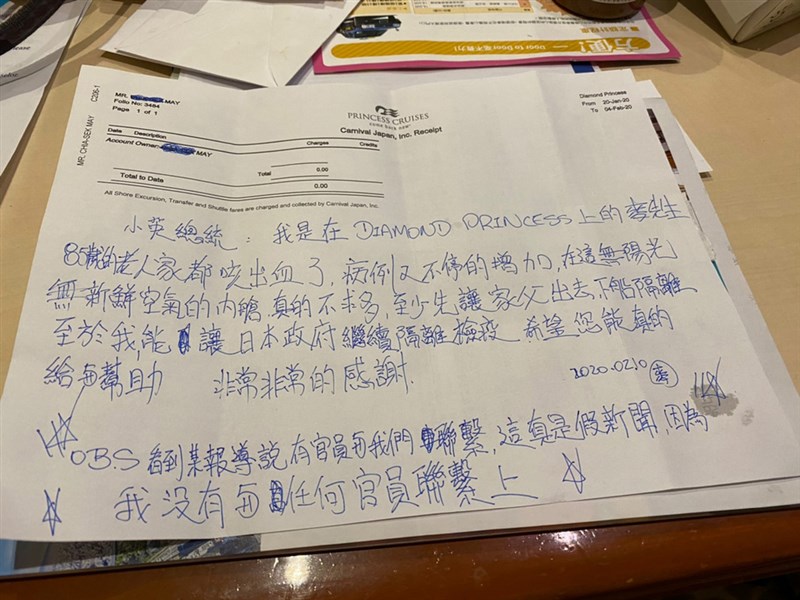 方便!
Door to Door 毫不費力!
C236-1
MR. CHIA-SEK MAY
MR. MAY
Folio No: 3484
Page 1 of 1
PRINCESS CRUISES
COME BACK NEW
Carnival Japan, Inc. Receipt
Diamond Princess
From 20-Jan-20
To 04-Feb-20
Date Description Charges Credits
Account Owner: MAY
Total 0.00
Total to Date 0.00
All Shore Excursion, Transfer and Shuttle fares are charged and collected by Carnival Japan, Inc.
小英總統:我是在 DIAMOND PRINCESS 上的 先生
85歲的老人家都咳出血了,病例又不停的增加,在這無陽光
無新鮮空氣的內艙,真的不求多,至少先讓家父出去,下船隔離
至於我,能讓日本政府繼續隔離檢疫 希望您能真的
給 幫助 非常非常的感謝.
2020.02.10
OBS 看到某報導說有官員 我們聯繫,這真是假新聞,因為
我沒有 任何官員聯繫上